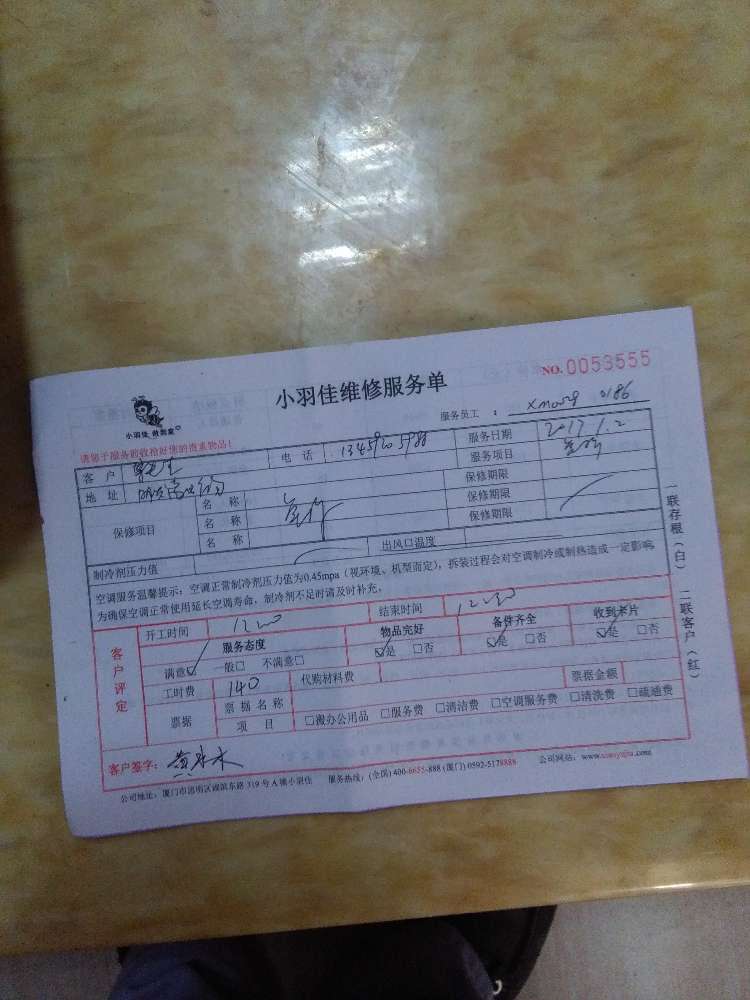 小羽佳维修服务单
NO.0053555
小羽佳 做到家
请您于服务前收拾好您的贵重物品！
服务员工：
客户 电话 13459205988 服务日期 2017.1.2
地址 服务项目
保修项目 名称 保修期限
名称 保修期限
名称 保修期限
制冷剂压力值 出风口温度
空调服务温馨提示：空调正常制冷剂压力值为0.45mpa（视环境、机型而定），拆装过程会对空调制冷或制热造成一定影响，
为确保空调正常使用延长空调寿命，制冷剂不足时请及时补充。
客户评定
开工时间 结束时间
服务态度 物品完好 备件齐全 收到卡片
满意☑ 一般□ 不满意□ ☑是 □否 ☑是 □否 ☑是 □否
工时费 140 代购材料费
票据 票据名称 票据金额
项目 □搬办公用品 □服务费 □清洁费 □空调服务费 □清洗费 □疏通费
客户签字：
公司地址：厦门市思明区湖滨东路319号A栋小羽佳 服务热线：(全国)400-8655-888 (厦门)0592-5178888 公司网站：www.xiaoyujia.com
一联存根（白） 二联客户（红）